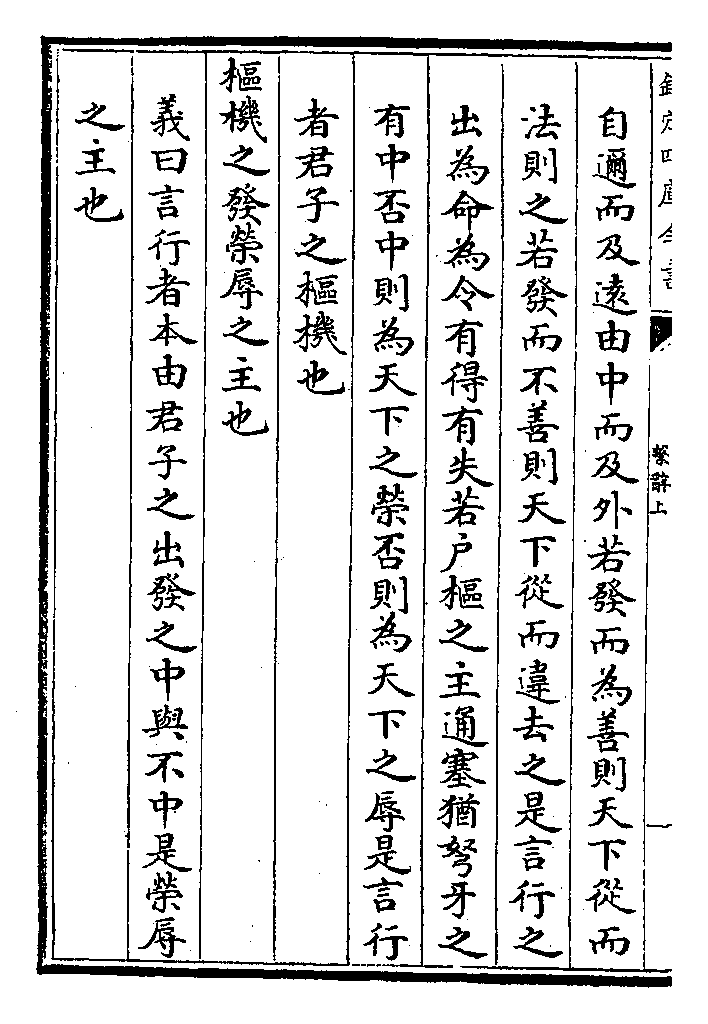 欽定四庫全書
繫辭上
自邇而及遠由中而及外若發而為善則天下從而
法則之若發而不善則天下從而違去之是言行之
出為命為令有得有失若户樞之主通塞猶弩牙之
有中否中則為天下之榮否則為天下之辱是言行
者君子之樞機也
樞機之發榮辱之主也
義曰言行者本由君子之出發之中與不中是榮辱
之主也